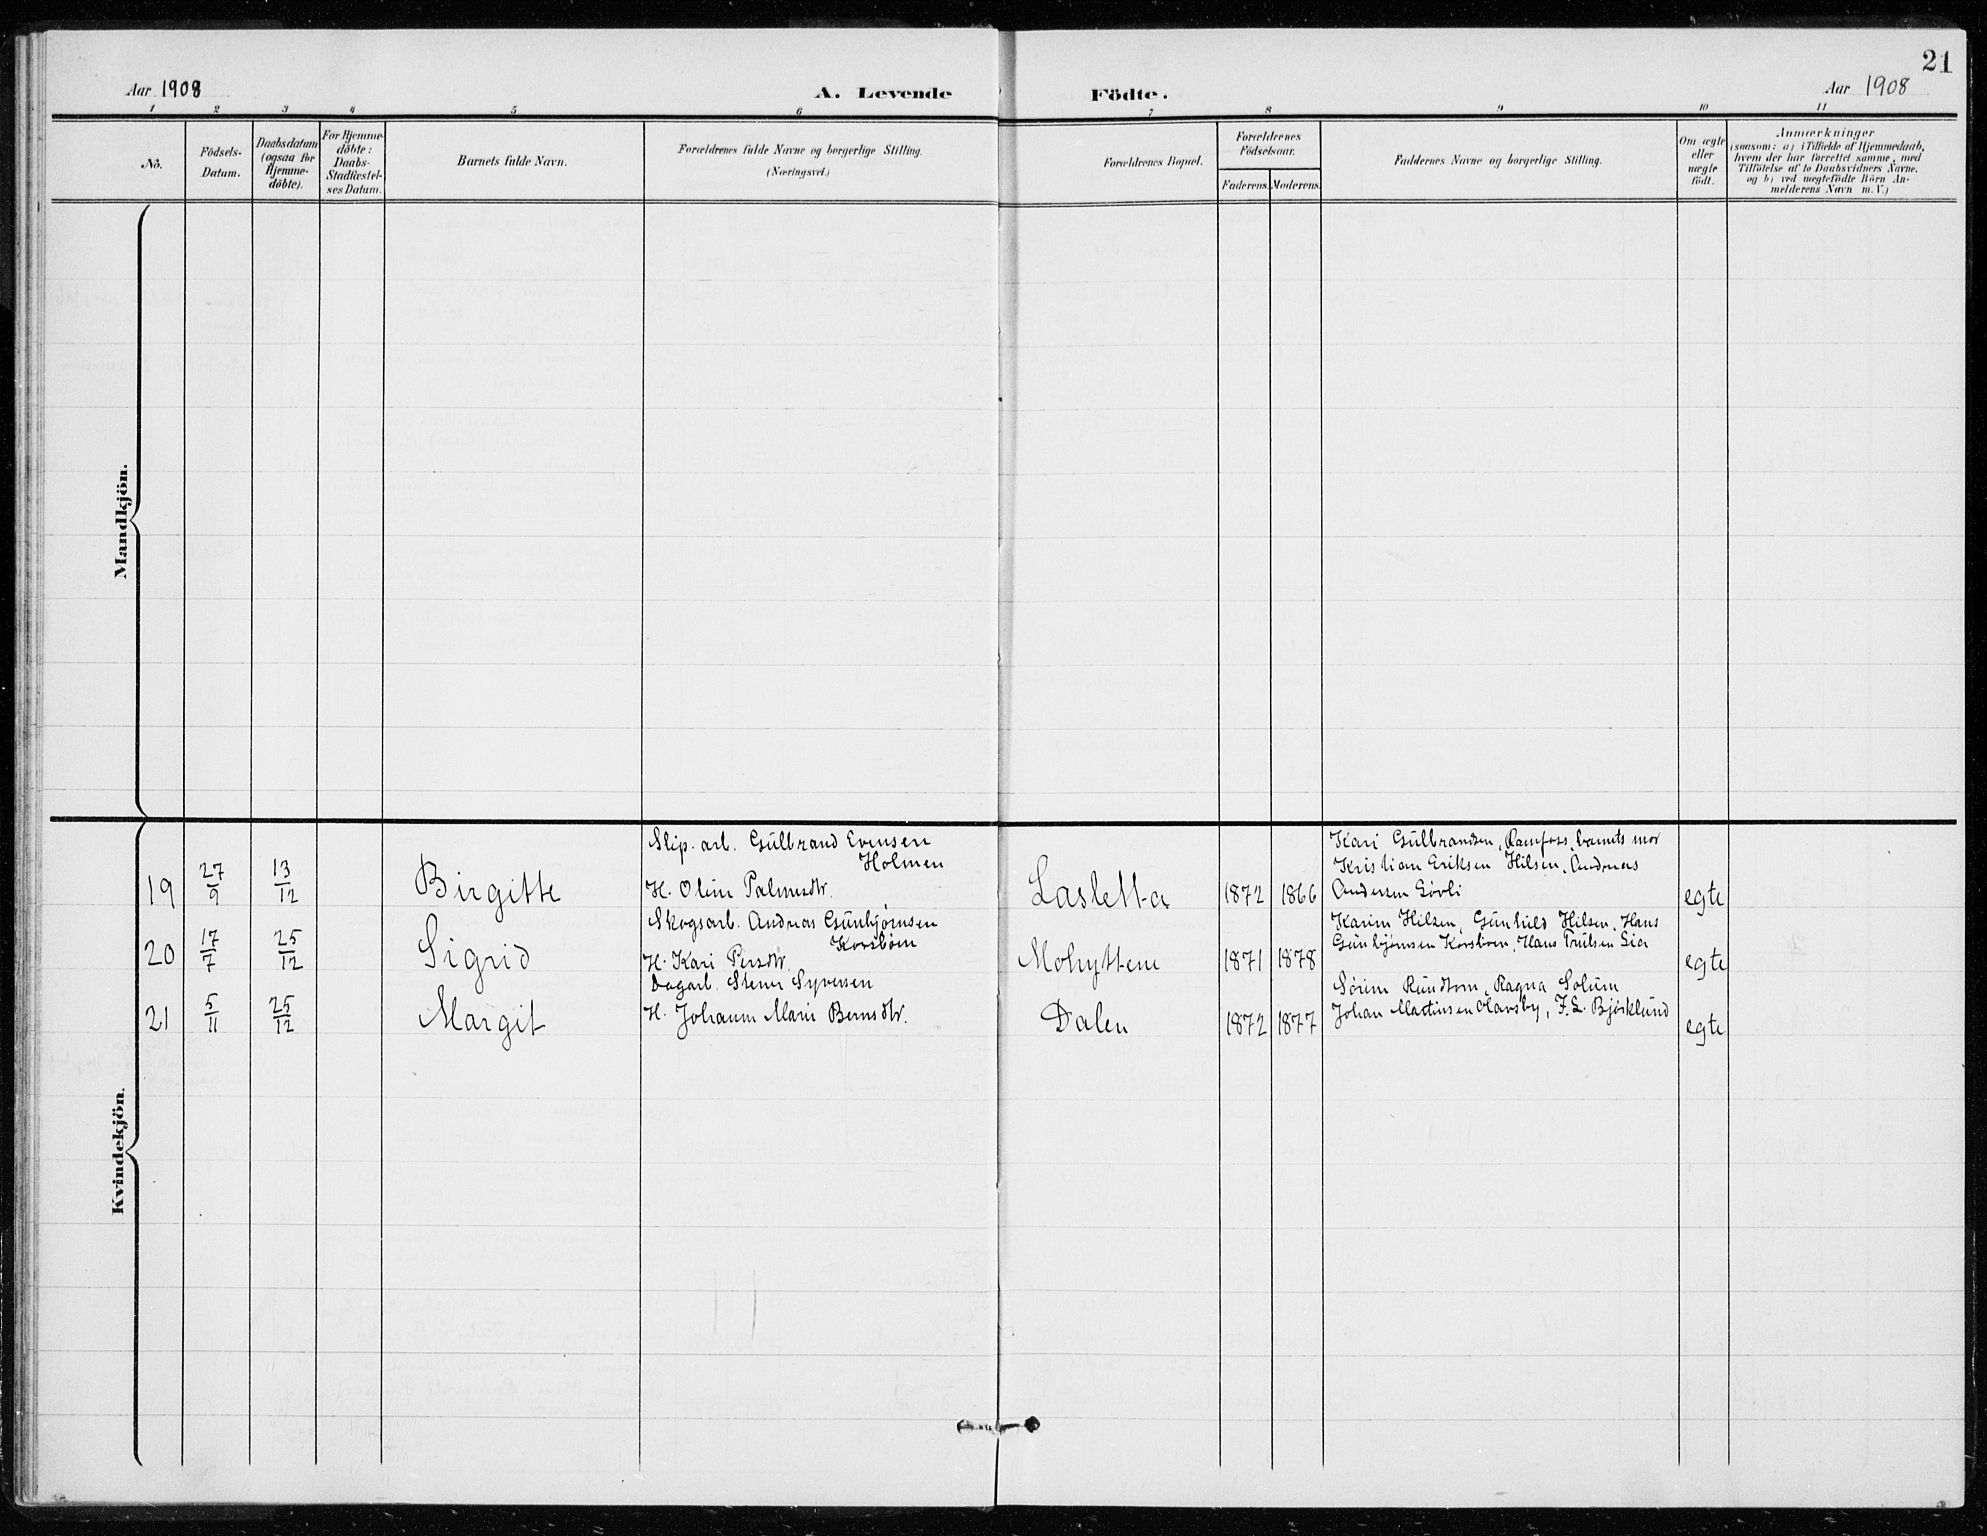 21
Aar 1908
A. Levende Födte.
Aar 1908
1 2 3 4 5 6 7 8 9 10 11
No.
Födsels-
Datum.
Daabsdatum
(ogsaa for
Hjemme-
döbte).
For Hjemme-
döbte:
Daabs-
Stadfæstel-
ses Datum.
Barnets fulde Navn.
Forældrenes fulde Navne og borgerlige Stilling.
(Næringsvei.)
Forældrenes Bopæl.
Forældrenes
Födselsaar.
Faderens. Moderens.
Faddernes Navne og borgerlige Stilling.
Om ægte
eller
uægte
födt.
Anmærkninger
(saasom: a) i Tilfælde af Hjemmedaab,
hvem der har forrettet samme, med
Tilföielse af to Daabsvidners Navne.
og b) ved uægtefödte Börn An-
melderens Navn m. V.)
Mandkjön.
Kvindekjön.
19 27/9 13/12 Birgitte
Slip. arb. Gulbrand Evensen
Holmen
H. Oline Palmesdtr.
Lasletta 1872 1866
Kari Gulbrandsen, Ramfoss, barnets mor
Kristian Eriksen Hilsen, Andreas
Andersen Sørli
egte
20 17/7 25/12 Sigrid
Skogsarb. Andreas Gunbjørnsen
Korsbøen
H. Kari Persdtr.
Mohyttene 1871 1878
Karin Hilsen, Gunhild Hilsen, Hans
Gunbjørnsen Korsbøen, Hans Trulsen Lia
egte
21 5/11 25/12 Margit
Dagarb. Stener Syversen
H. Johanne Marie Berntsdtr.
Dalen 1872 1877
Sørine Rundtom, Ragna Solum
Johan Martinsen Olavsby, F. L. Bjørklund
egte